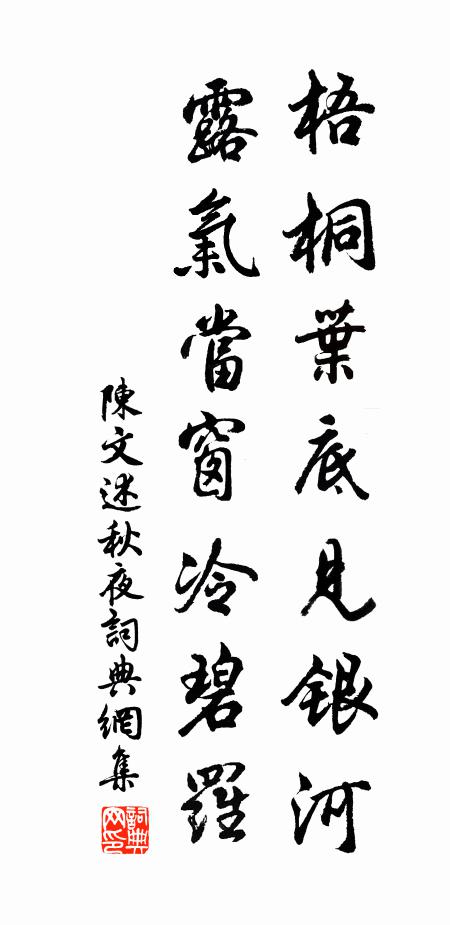 梧桐葉底見銀河
露氣當窗冷碧羅
陳文述秋夜詞典網集
詞典網印